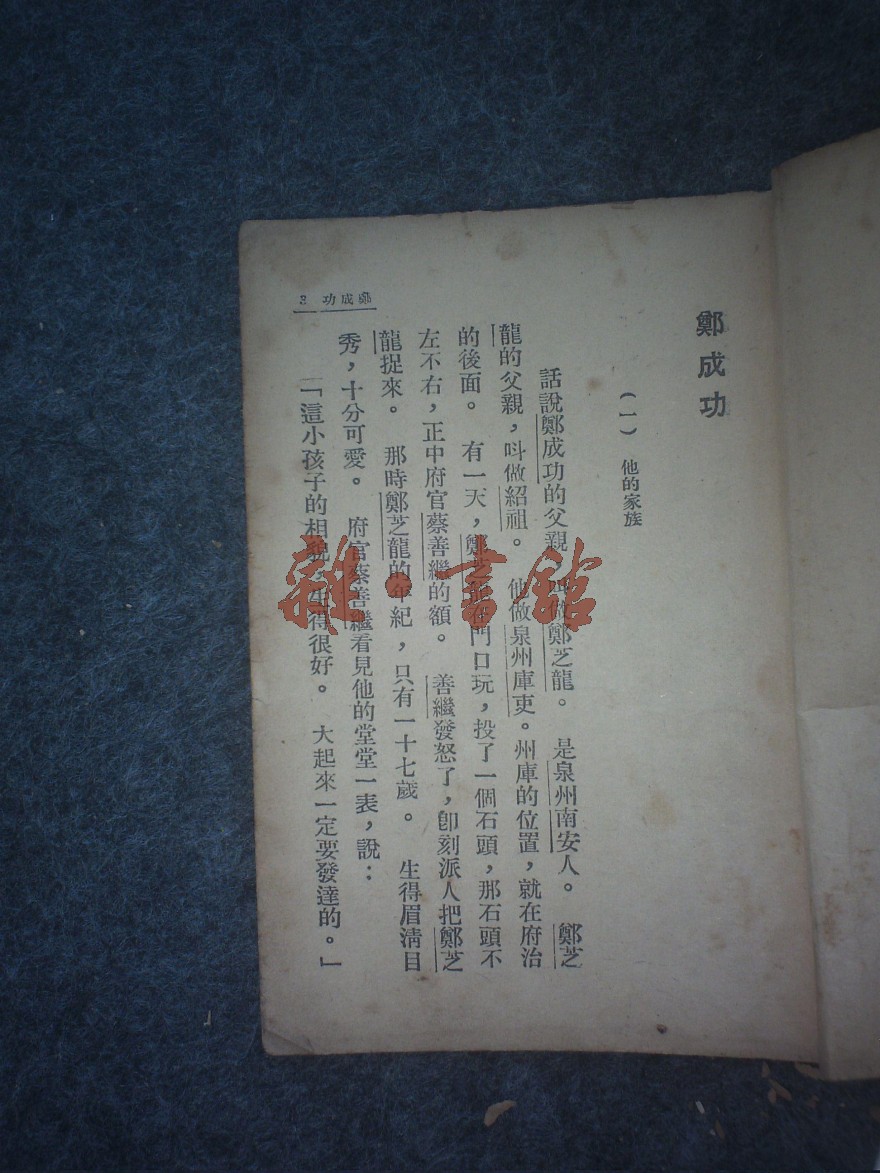 鄭成功
(一) 他的家族
話說鄭成功的父親 叫做鄭芝龍。 是泉州南安人。 鄭芝
龍的父親,叫做紹祖。 他做泉州庫吏。州庫的位置,就在府治
的後面。 有一天,鄭芝龍在門口玩,投了一個石頭,那石頭不
左不右,正中府官蔡善繼的額。 善繼發怒了,卽刻派人把鄭芝
龍捉來。 那時鄭芝龍的年紀,只有一十七歲。 生得眉淸目
秀,十分可愛。 府官蔡善繼看見他的堂堂一表,說:
「這小孩子的相貌,生得很好。 大起來一定要發達的。」
鄭成功 3
雜·書館